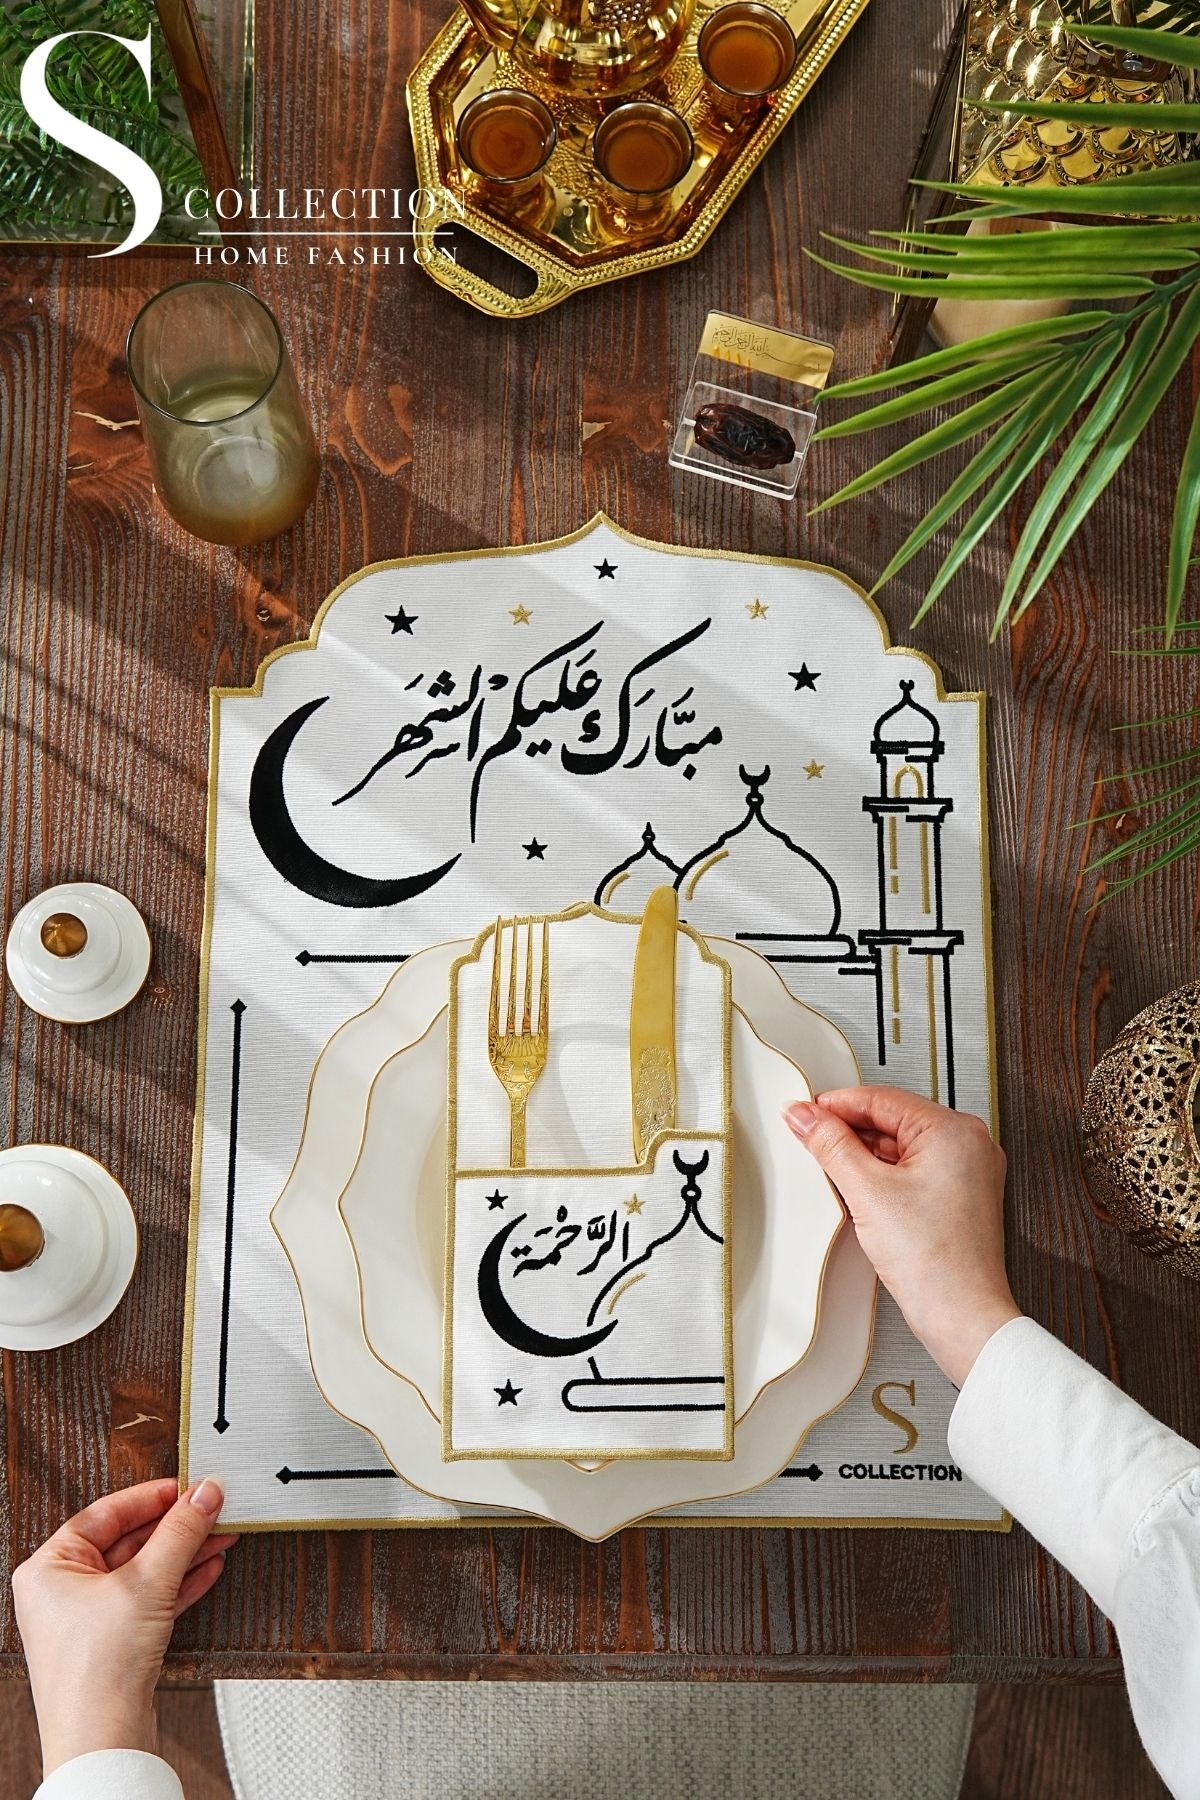 S
COLLECTION
HOME FASHION
مبَّارَك عَليكمْ الشهَر
الرَّحْمَة
S
COLLECTION